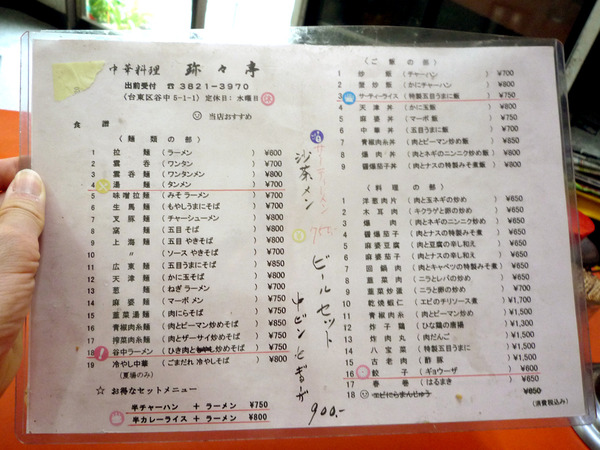 中華料理 弥々亭
出前受付 ☎3821-3970
(台東区谷中5-1-1) 定休日:水曜日
当店おすすめ
食 譜
〈麺類の部〉
1 拉麺 (ラーメン) ¥600
2 雲呑 (ワンタン) ¥700
3 雲呑麺 (ワンタンメン) ¥800
4 湯麺 (タンメン) ¥700
5 味噌拉麺 (みそラーメン) ¥700
6 生馬麺 (もやしうまにそば) ¥700
7 叉豚麺 (チャーシューメン) ¥800
8 窩麺 (五目そば) ¥800
9 上海麺 (五目やきそば) ¥800
10 〃 (ソースやきそば) ¥700
11 広東麺 (五目うまにそば) ¥850
12 天津麺 (かに玉そば) ¥800
13 葱麺 (ねぎラーメン) ¥700
14 麻婆麺 (マーボメン) ¥750
15 韮菜湯麺 (肉にらそば) ¥750
16 青椒肉糸麺 (肉とピーマン炒めそば) ¥850
17 搾菜肉糸麺 (肉とザーサイ炒めそば) ¥850
18 谷中ラーメン (ひき肉と 炒めそば) ¥750
19 冷やし中華 (ごまだれ冷やしそば) ¥800
(夏場のみ)
☆ お得なセットメニュー
半チャーハン + ラーメン ¥750
半カレーライス + ラーメン ¥800
沙茶メン
750.-
ビールセット
中ビンとギョーザ
900.-
〈ご飯の部〉
1 炒飯 (チャーハン) ¥700
2 蟹炒飯 (かにチャーハン) ¥800
3 サーティーライス (五目うま飯) ¥750
4 天津丼 (かに玉飯) ¥800
5 麻婆丼 (マーボ飯) ¥750
6 中華丼 (五目うまに飯) ¥800
7 青椒肉糸丼 (肉とピーマン炒め飯) ¥850
8 爆肉丼 (肉とネギのニンニク炒め飯) ¥850
9 醤爆茄子丼 (肉とナスの特製みそ煮飯) ¥850
〈料理の部〉
1 洋葱肉片 (肉と玉ネギの炒め) ¥650
2 木耳肉 (キクラゲと卵の炒め) ¥650
3 爆肉 (肉とネギのニンニク炒め) ¥650
4 醤爆茄子 (肉とナスの特製みそ煮) ¥650
5 麻婆豆腐 (肉と豆腐の辛し和え) ¥650
6 麻婆茄子 (肉とナスの辛し和え) ¥650
7 回鍋肉 (肉とキャベツの特製みそ煮) ¥650
8 韮菜肉 (ニラとレバの炒め) ¥650
9 韮菜炒蛋 (ニラと卵の炒め) ¥700
10 乾焼蝦仁 (エビのチリソース煮) ¥1,500
11 青椒肉糸 (肉とピーマン炒め) ¥1,100
12 炸子鶏 (ひな鶏の唐揚) ¥1,300
13 炸肉丸 (肉だんご) ¥1,100
14 八宝菜 (特製五目うまに) ¥1,100
15 古老肉 (酢豚) ¥1,100
16 餃子 (ギョウーザ) ¥600
17 春巻 (はるまき) ¥650
18 エビにらまんじゅう ¥650
(消費税込み)